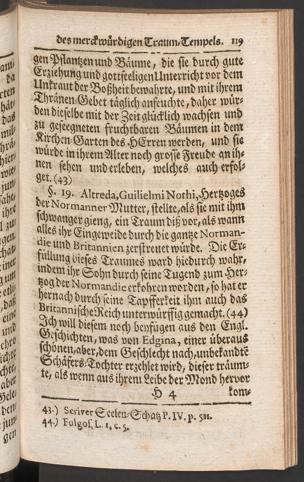 des merckwürdigen Traum-Tempels. 119
gen Pflantzen und Bäume, die sie durch gute
Erziehung und gottseeligen Unterricht vor dem
Unkraut der Boßheit bewahrte, und mit ihrem
Thränen-Gebet täglich anfeuchte, daher wür-
den dieselbe mit der Zeit glücklich wachsen und
zu geseegneten fruchtbaren Bäumen in dem
Kirchen Garten des HErren werden, und sie
würde in ihrem Alter noch grosse Freude an ih-
nen sehen und erleben, welches auch erfol-
get. (43)
§. 19. Altreda, Guilielmi Nothi, Hertzoges
der Normanner Mutter, stellte, als sie mit ihm
schwanger gieng, ein Traum diß vor, als wann
alles ihr Eingeweide durch die gantze Norman-
die und Britannien zerstreuet würde. Die Er-
füllung dieses Traumes ward hiedurch wahr,
indem ihr Sohn durch seine Tugend zum Her-
tzog der Normandie erkohren worden, so hat er
hernach durch seine Tapfferkeit ihm auch das
Britannische Reich unterwürffig gemacht. (44)
Ich will diesem noch beyfügen aus den Engl.
Geschichten, was von Edgina, einer überaus
schönen, aber, dem Geschlecht nach, unbekandtē
Schäfers-Tochter erzehlet wird, dieser träum-
te, als wenn aus ihrem Leibe der Mond hervor
H 4 kom-
43.) Scriver Seelen-Schatz P. IV. p. 511.
44.) Fulgos. L. 1, c. 5.